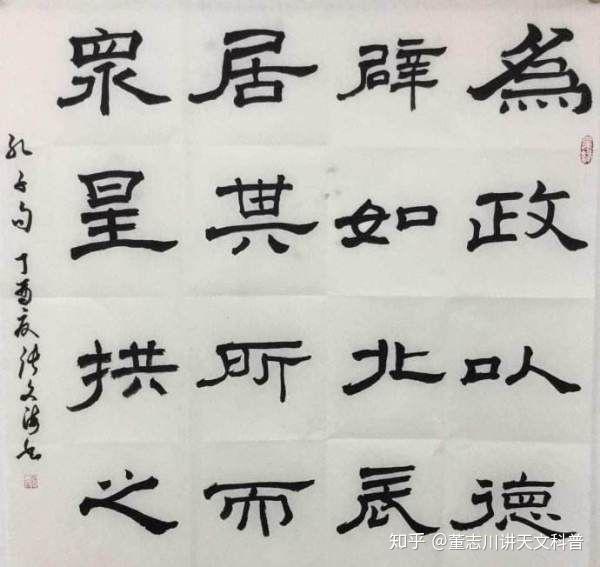 為政以德
辟如北辰
居其所而
眾星拱之
孔子句 丁酉夏 张文海书
知乎 @董志川讲天文科普